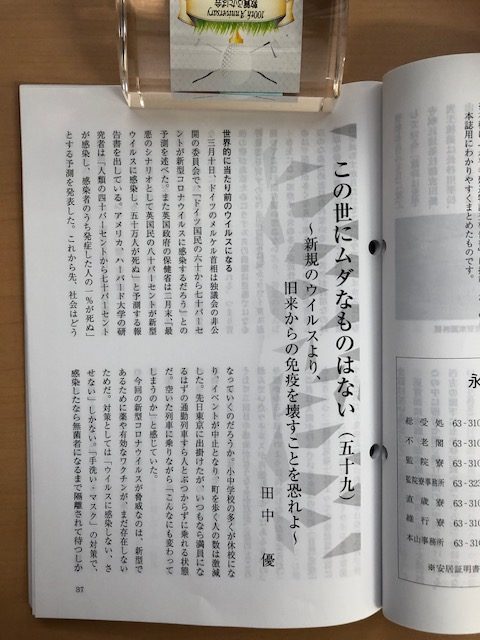 100th Anniversary
この世にムダなものはない（五十九）
～新規のウイルスより、
旧来からの免疫を壊すことを恐れよ～
田中　優
世界的に当たり前のウイルスになる
三月十日、ドイツのメルケル首相は独議会の非公
開の委員会で、「ドイツ国民の六十から七十パーセ
ントが新型コロナウイルスに感染するだろう」との
予測を述べた。また英国政府の保健省は二月末、「最
悪のシナリオとして英国民の八十パーセントが新型
ウイルスに感染し、五十万人が死ぬ」と予測する報
告書を出している。アメリカ、ハーバード大学の研
究者は「人類の四十パーセントから七十パーセント
が感染し、感染者のうち発症した人の一％が死ぬ」
とする予測を発表した。これから先、社会はどう
なっていくのだろうか。小中学校の多くが休校にな
り、イベントが中止となり、町を歩く人の数は激減
した。先日東京に出掛けたが、いつもなら満員にな
るはずの通勤列車すら人とぶつからずに乗れる状態
だ。空いた列車に乗りながら「こんなにも変わって
しまうのか」と感じていた。
今回の新型コロナウイルスが脅威なのは、新型で
あるために薬や有効なワクチンが、まだ存在しない
ためだ。対策としては「ウイルスに感染しない、さ
せない」しかない。「手洗い・マスク」の対策で、
感染したなら無菌者になるまで隔離されて待つしか
87
本誌用にわかりやすくまとめたものです。
永
総受処 63-310
不老閣 63-310
監院寮 63-310
監院寮事務所 63-323
直歳寮 63-310
維行寮 63-310
本山事務所 63-310
※安居証明書